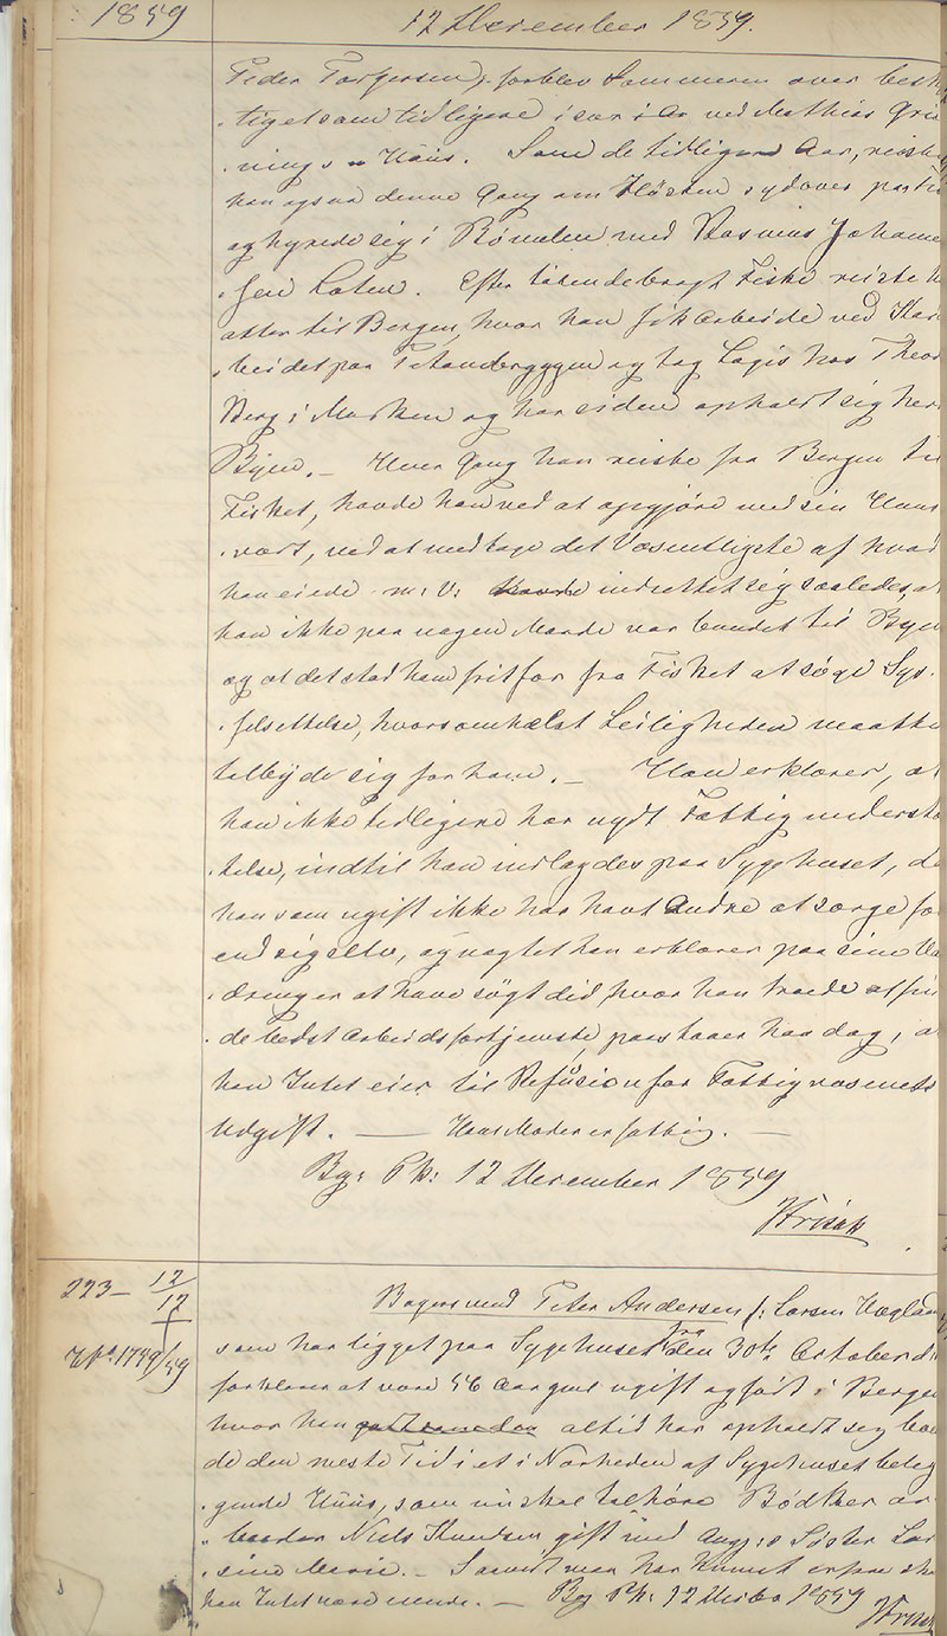 1859
12 December 1859.
Peder Torgersen, forblev Sommeren over besk
tiget som tidligere i ved Mathias Grü
nings Huus. Som de tidligere Aar, reiste
han ogsaa denne Gang om Høsten sydover paa Fi
og hyrede sig i Bømmelen med Rasmus Johanne
sen Loten. Efter tilendebragt Fiske reiste h
atter til Bergen, hvor han fik Arbeide ved Har
beidet paa og tog Logis hos Theod
Berg i Marken og har siden opholdt sig her i
Byen. – Hver Gang han reiste fra Bergen til
Fisket, havde han ved at opgjøre med sin Huus
vært, ved at medtage det Væsentligste af hvad
han eiede m: v: havde indrettet sig saaledes, at
han ikke paa nogen Maade var bundet til Byen
og at det stod ham frit for fra Fisket at søge Sys-
selsættelse, hvorsomhelst Leiligheden maatte
tilbyde sig for ham. – Han erklærer, at
han ikke tidligere har nydt Fattigunderstø
telse, indtil han indlagdes paa Sygehuset, da
han som ugift ikke har havt Andre at sørge for
end sig selv, og uagtet han erklærer paa sine Va
dringer at have søgt did, hvor han troede at fin
de bedst Arbeidsfortjeneste, paastaaer han dog, at
han Intet eier til Refusion for Fattigvæsenets
Udgift. — Hans Moder er fattig. —
Bg: Pk: 12 December 1859
Krisch
223 – 12/12
JNo 1749/59
Bogersmed Peter Andersen /: Larsen Hægland
som har ligget paa Sygehuset fra den 30te October d:
forklarer at være 56 Aar gml ugift og født i Bergen
hvor han altid har opholdt sig boe
de den meste Tid i et i Nærheden af Sygehuset beleg
gende Huus, som nu skal tilhøre Bødker ar
beider Niels Knudsen, gift med Angj:s Søster Lar
sine Marie. – Saavidt man har kunnet erfare skal
han Intet være eiende. — Bg Pk: 12 Decbr 1859
Krisch